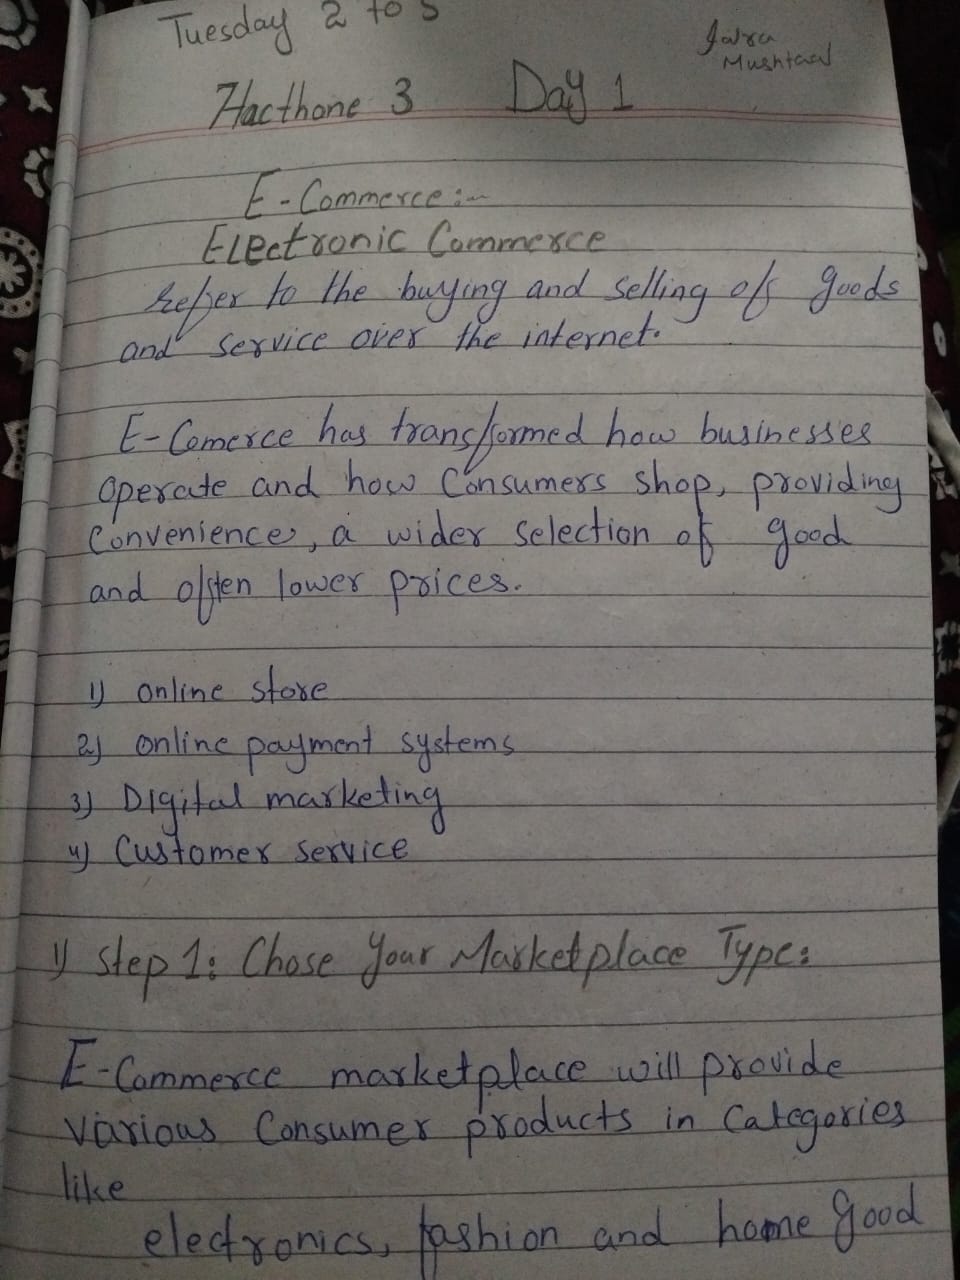 Tuesday 2 to 5
Mushtaal
Hacthone 3 Day 1
E-Commerce:-
Electronic Commerce
refer to the buying and selling of goods
and service over the internet.
E-Comerce has transformed how businesses
operate and how Consumers shop, providing
Convenience, a wider selection of good
and often lower prices.
1) online store
2) online payment systems
3) Digital marketing
4) Customer service
1) Step 1: Chose Your Marketplace Type:
E-Commerce marketplace will provide
various Consumer products in Categories
like
electronics, fashion and home good